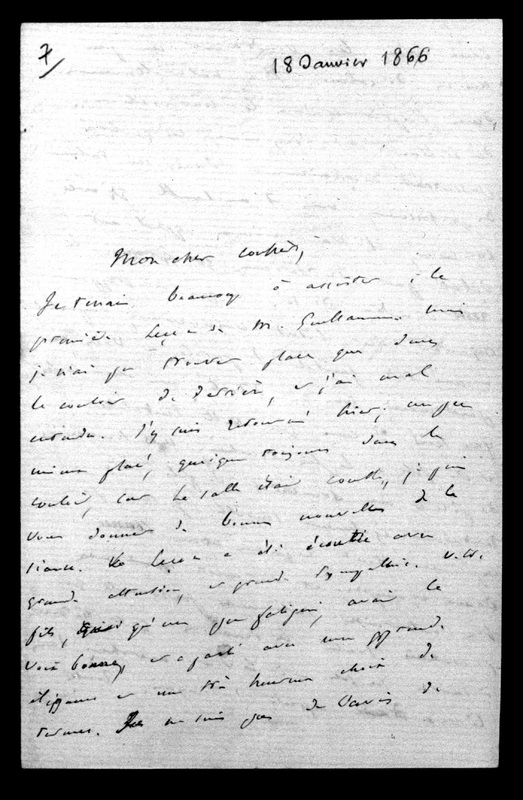 7
18 Janvier 1866
Mon cher confrère,
Je tenais beaucoup à assister à la
première leçon de M. Guillaume mais
je n'ai pu trouver place que dans
le couloir de derrière, et j'ai mal
entendu. J'y suis retourné hier; un peu
mieux placé, quoique toujours dans le
couloir, car la salle était comble, je puis
vous donner de bonnes nouvelles de la
séance. La leçon a été écoutée avec
grande attention, et grande sympathie. Votre
fils, quoiqu'un peu fatigué, avait la
voix bonne, et a parlé avec une grande
élégance et un très heureux choix de
termes. Je ne suis pas de l'avis de